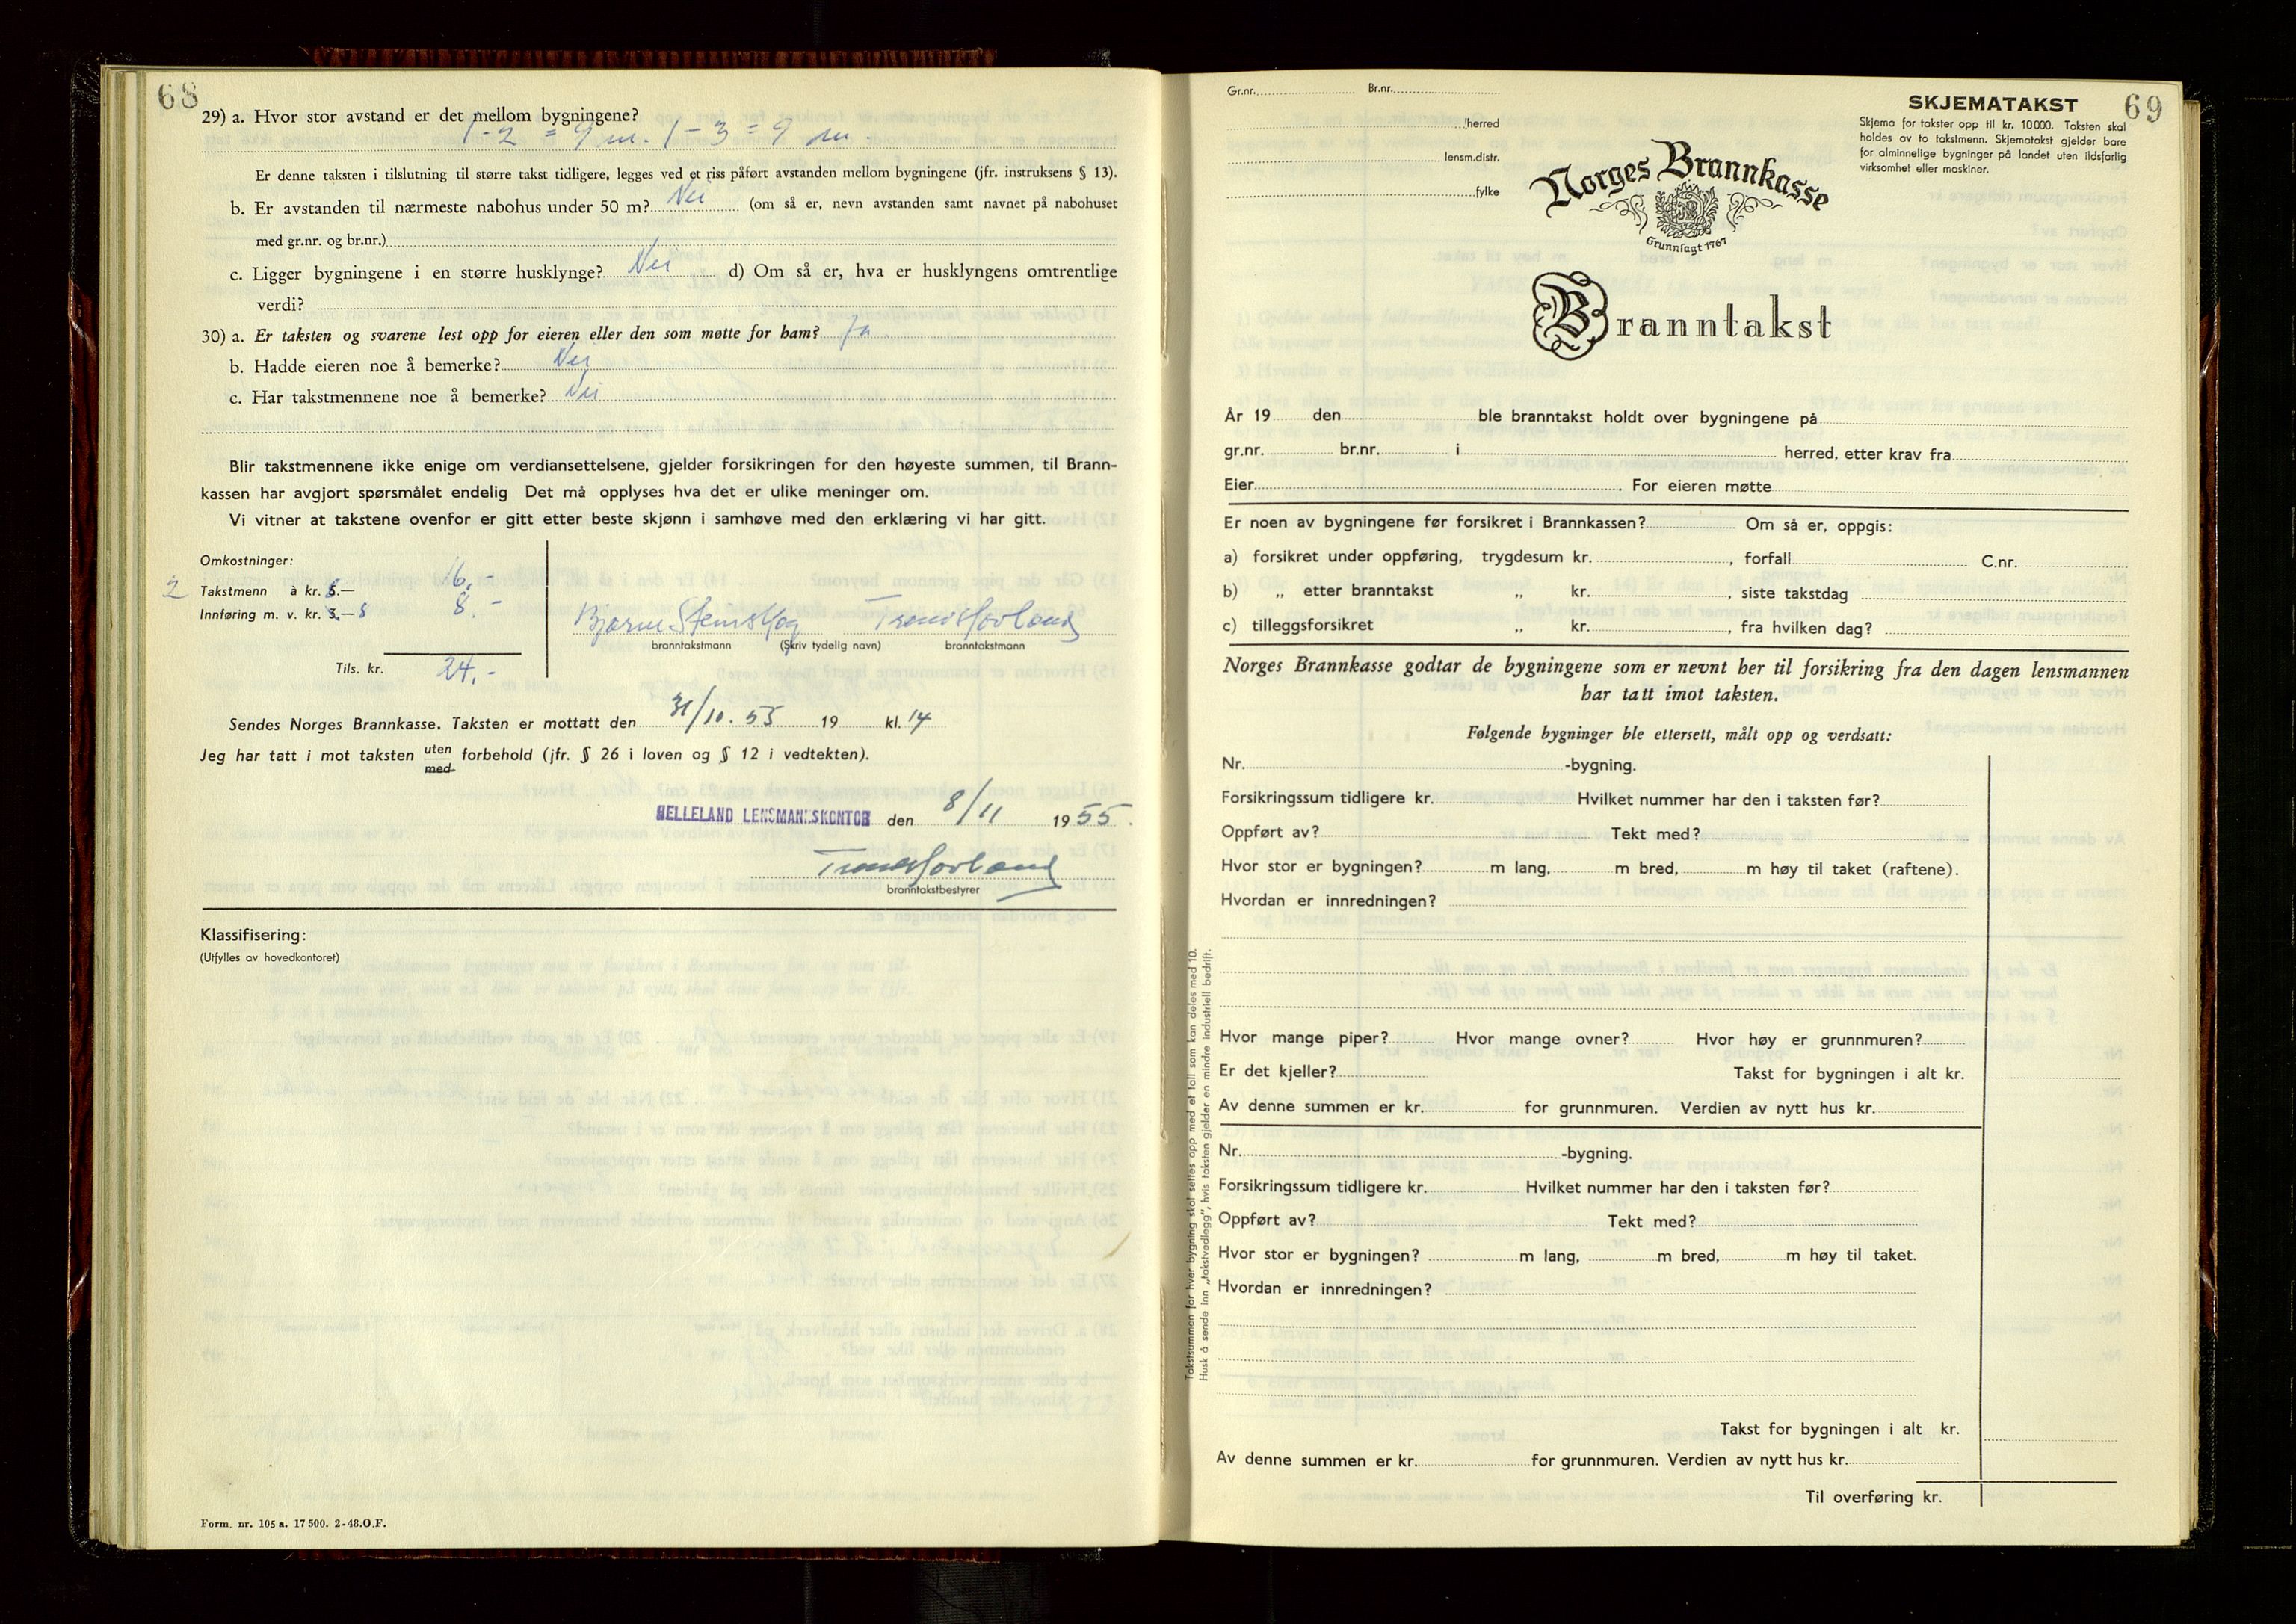 68
29) a. Hvor stor avstand er det mellom bygningene?
1-2 = 9 m. 1-3 = 9 m.
Er denne taksten i tilslutning til større takst tidligere, legges ved et riss påført avstanden mellom bygningene (jfr. instruksens § 13).
b. Er avstanden til nærmeste nabohus under 50 m? Nei (om så er, nevn avstanden samt navnet på nabohuset
med gr.nr. og br.nr.)
c. Ligger bygningene i en større husklynge? Nei d) Om så er, hva er husklyngens omtrentlige
verdi?
30) a. Er taksten og svarene lest opp for eieren eller den som møtte for ham? Ja
b. Hadde eieren noe å bemerke? Nei
c. Har takstmennene noe å bemerke? Nei
Blir takstmennene ikke enige om verdiansettelsene, gjelder forsikringen for den høyeste summen, til Brann-
kassen har avgjort spørsmålet endelig Det må opplyses hva det er ulike meninger om.
Vi vitner at takstene ovenfor er gitt etter beste skjønn i samhøve med den erklæring vi har gitt.
Omkostninger:
2 Takstmenn à kr. 8.— 16.-
Innføring m. v. kr. 3.— 8 8.-
Bjarne Stemskog Trond Hovland
branntakstmann (Skriv tydelig navn) branntakstmann
Tils. kr. 24.-
Sendes Norges Brannkasse. Taksten er mottatt den 31/10. 55 19 kl. 14
Jeg har tatt i mot taksten uten forbehold (jfr. § 26 i loven og § 12 i vedtekten).
med
HELLELAND LENSMANNSKONTOR den 8/11 1955.
Trond Hovland
branntakstbestyrer
Klassifisering:
(Utfylles av hovedkontoret)
Form. nr. 105 a. 17 500. 2-48.O.F.
69
Gr.nr. Br.nr.
herred
lensm.distr.
fylke
SKJEMATAKST
Skjema for takster opp til kr. 10000. Taksten skal
holdes av to takstmenn. Skjematakst gjelder bare
for alminnelige bygninger på landet uten ildsfarlig
virksomhet eller maskiner.
Norges Brannkasse
Grunnlagt 1767
Branntakst
År 19 den ble branntakst holdt over bygningene på
gr.nr. br.nr. i herred, etter krav fra
Eier. For eieren møtte
Er noen av bygningene før forsikret i Brannkassen? Om så er, oppgis:
a) forsikret under oppføring, trygdesum kr. , forfall C.nr.
b) „ etter branntakst „ kr. , siste takstdag
c) tilleggsforsikret „ kr. , fra hvilken dag?
Norges Brannkasse godtar de bygningene som er nevnt her til forsikring fra den dagen lensmannen
har tatt imot taksten.
Følgende bygninger ble ettersett, målt opp og verdsatt:
Nr. -bygning.
Forsikringssum tidligere kr. Hvilket nummer har den i taksten før?
Oppført av? Tekt med?
Hvor stor er bygningen? m lang, m bred, m høy til taket (raftene).
Hvordan er innredningen?
Hvor mange piper? Hvor mange ovner? Hvor høy er grunnmuren?
Er det kjeller? Takst for bygningen i alt kr.
Av denne summen er kr. for grunnmuren. Verdien av nytt hus kr.
Nr. -bygning.
Forsikringssum tidligere kr. Hvilket nummer har den i taksten før?
Oppført av? Tekt med?
Hvor stor er bygningen? m lang, m bred, m høy til taket.
Hvordan er innredningen?
Takst for bygningen i alt kr.
Av denne summen er kr. for grunnmuren. Verdien av nytt hus kr.
Til overføring kr.
Takstsummen for hver bygning skal settes opp med et tall som kan deles med 10.
Husk å sende inn „takstvedlegg", hvis taksten gjelder en mindre industriell bedrift.